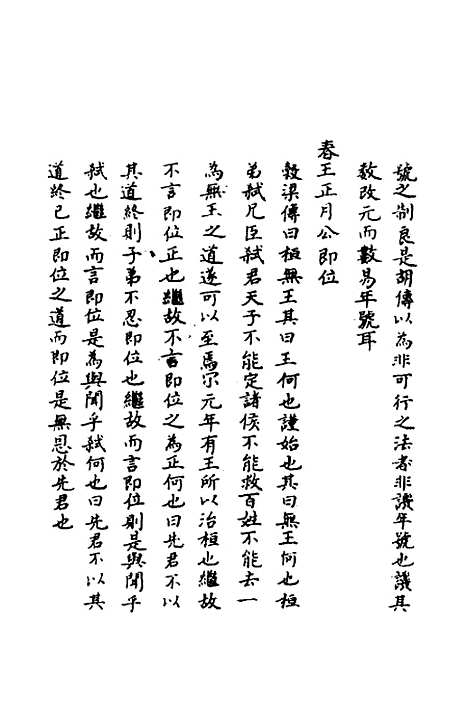 號之制良是胡傳以為非可行之法者非譏年號也譏其
數改元而數易年號耳
春王正月公即位
穀梁傳曰桓無王其曰王何也謹始也其曰無王何也桓
弟弒兄臣弒君天子不能定諸侯不能救百姓不能去一
為無王之道遂可以至焉爾元年有王所以治桓也繼故
不言即位正也繼故不言即位之為正何也曰先君不以
其道終則子弟不忍即位也繼故而言即位則是與聞乎
弒也繼故而言即位是為與聞乎弒何也曰先君不以其
道終已正即位之道而即位是無恩於先君也